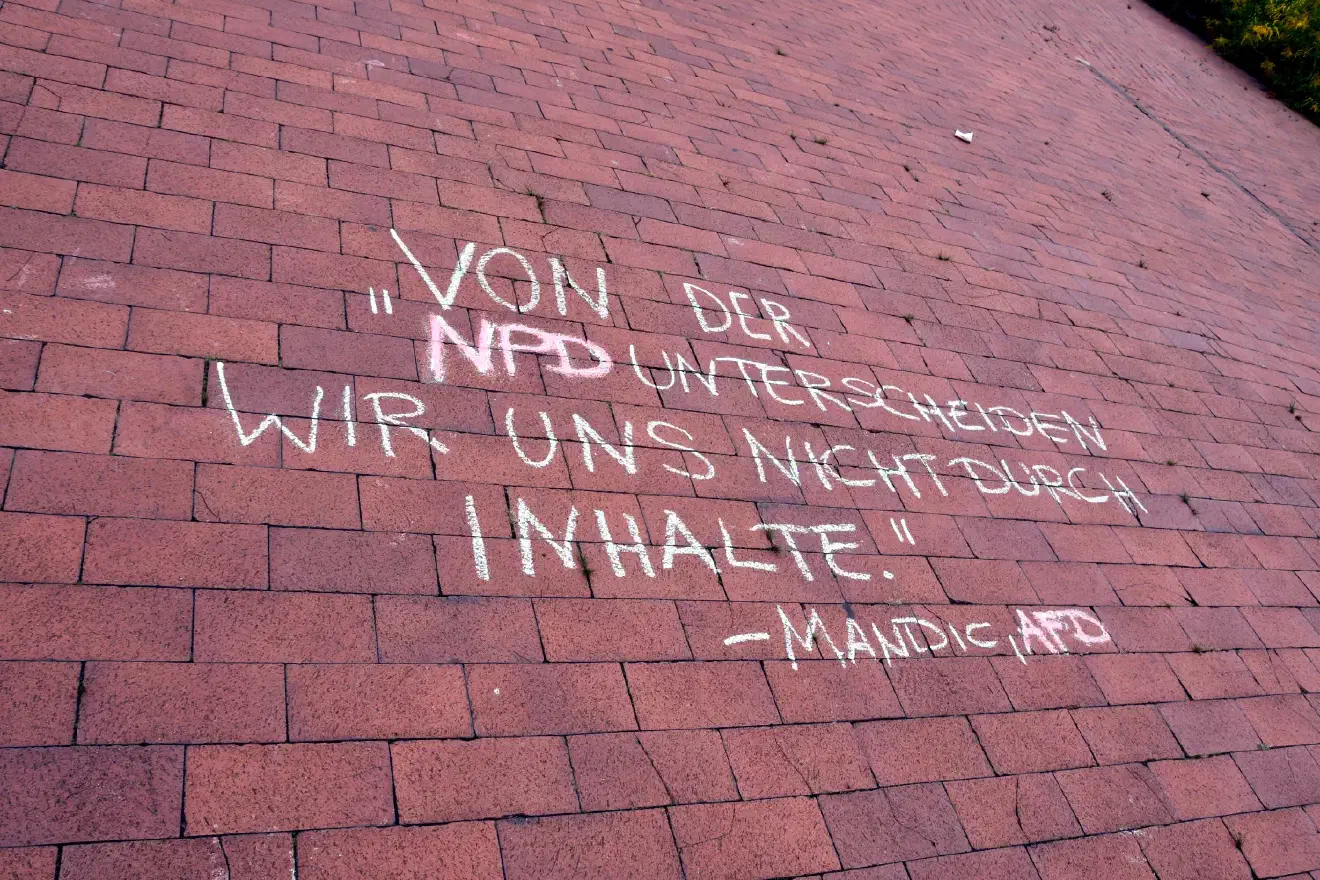 „VON DER
NPD UNTERSCHEIDEN
WIR UNS NICHT DURCH
INHALTE."
- MANDIC, AFD